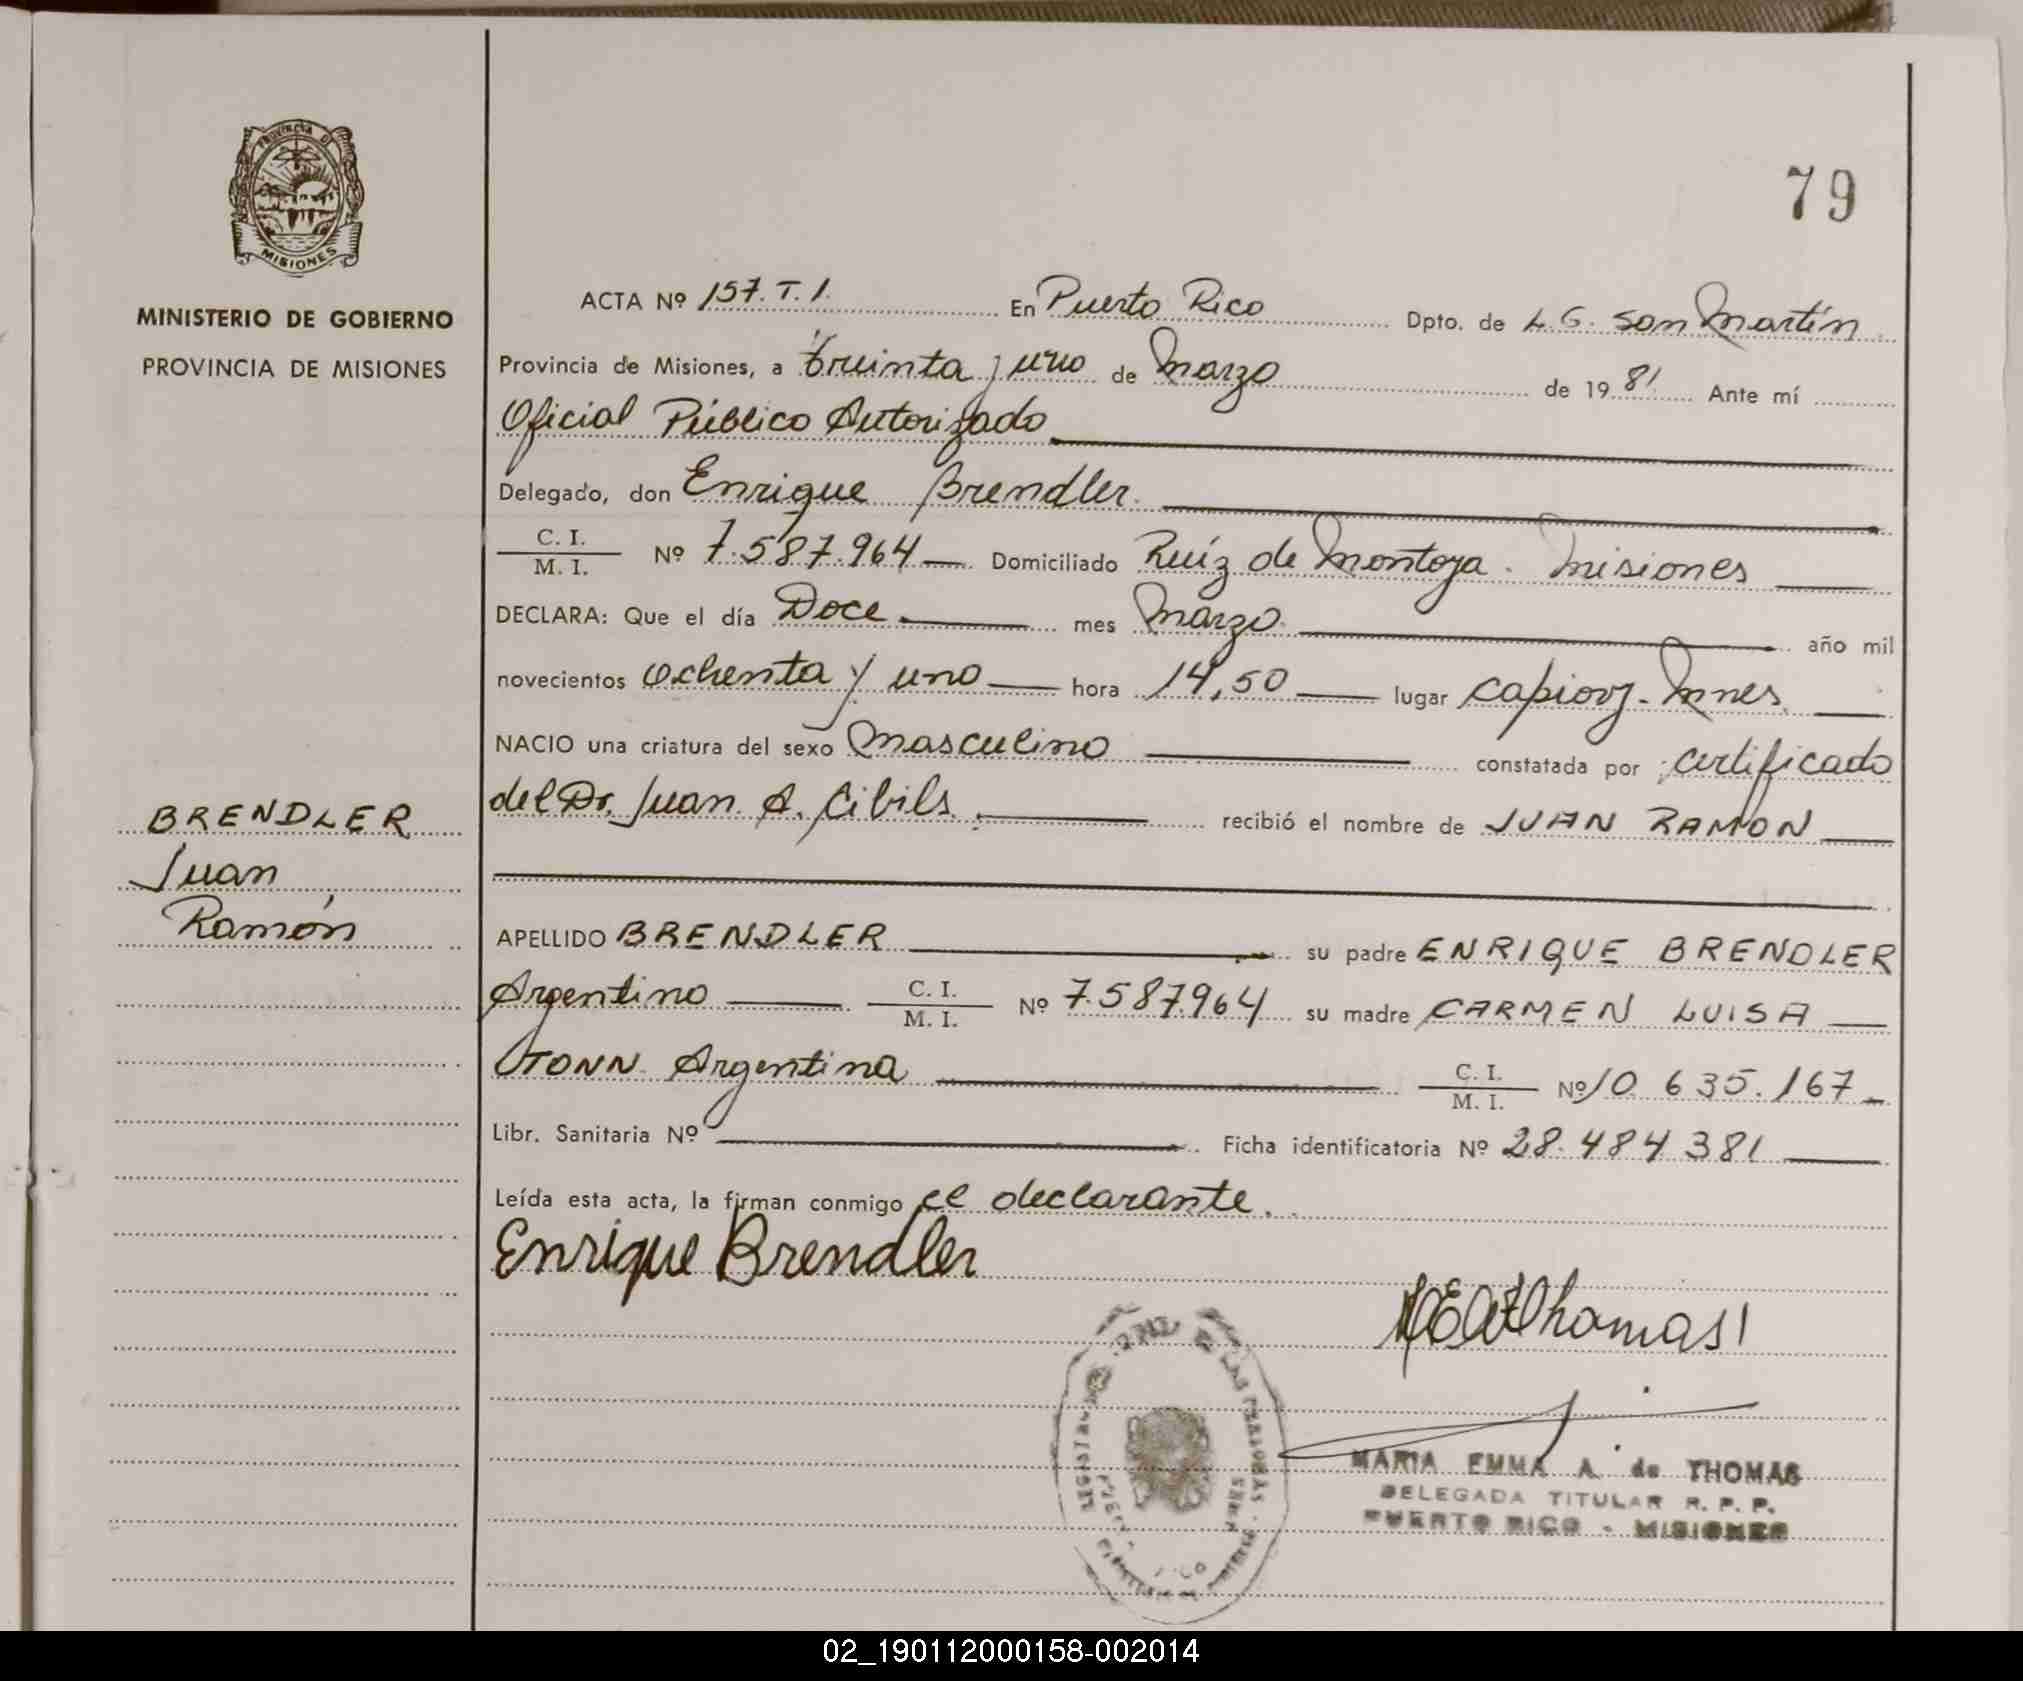 79
PROVINCIA DE
MISIONES
MINISTERIO DE GOBIERNO
PROVINCIA DE MISIONES
BRENDLER
Juan
Ramón
ACTA Nº 157. T. 1. En Puerto Rico Dpto. de L. G. San Martín
Provincia de Misiones, a treinta y uno de Marzo de 1981 Ante mí
Oficial Público Autorizado
Delegado, don Enrique Brendler.
C. I.
M. I.
Nº 7.587.964 Domiciliado Ruíz de Montoya. Misiones
DECLARA: Que el día Doce mes Marzo año mil
novecientos ochenta y uno hora 14,50 lugar Capiovy-Mnes.
NACIO una criatura del sexo Masculino constatada por certificado
del Dr. Juan A. Cibils. recibió el nombre de JUAN RAMON
APELLIDO BRENDLER su padre ENRIQUE BRENDLER
Argentino C. I.
M. I. Nº 7.587.964 su madre CARMEN LUISA
TONN. Argentina C. I.
M. I. Nº 10.635.167
Libr. Sanitaria Nº Ficha identificatoria Nº 28.484.381
Leída esta acta, la firman conmigo el declarante.
Enrique Brendler
MARIA EMMA A. de THOMAS
DELEGADA TITULAR R. P. P.
PUERTO RICO - MISIONES
02_190112000158-002014